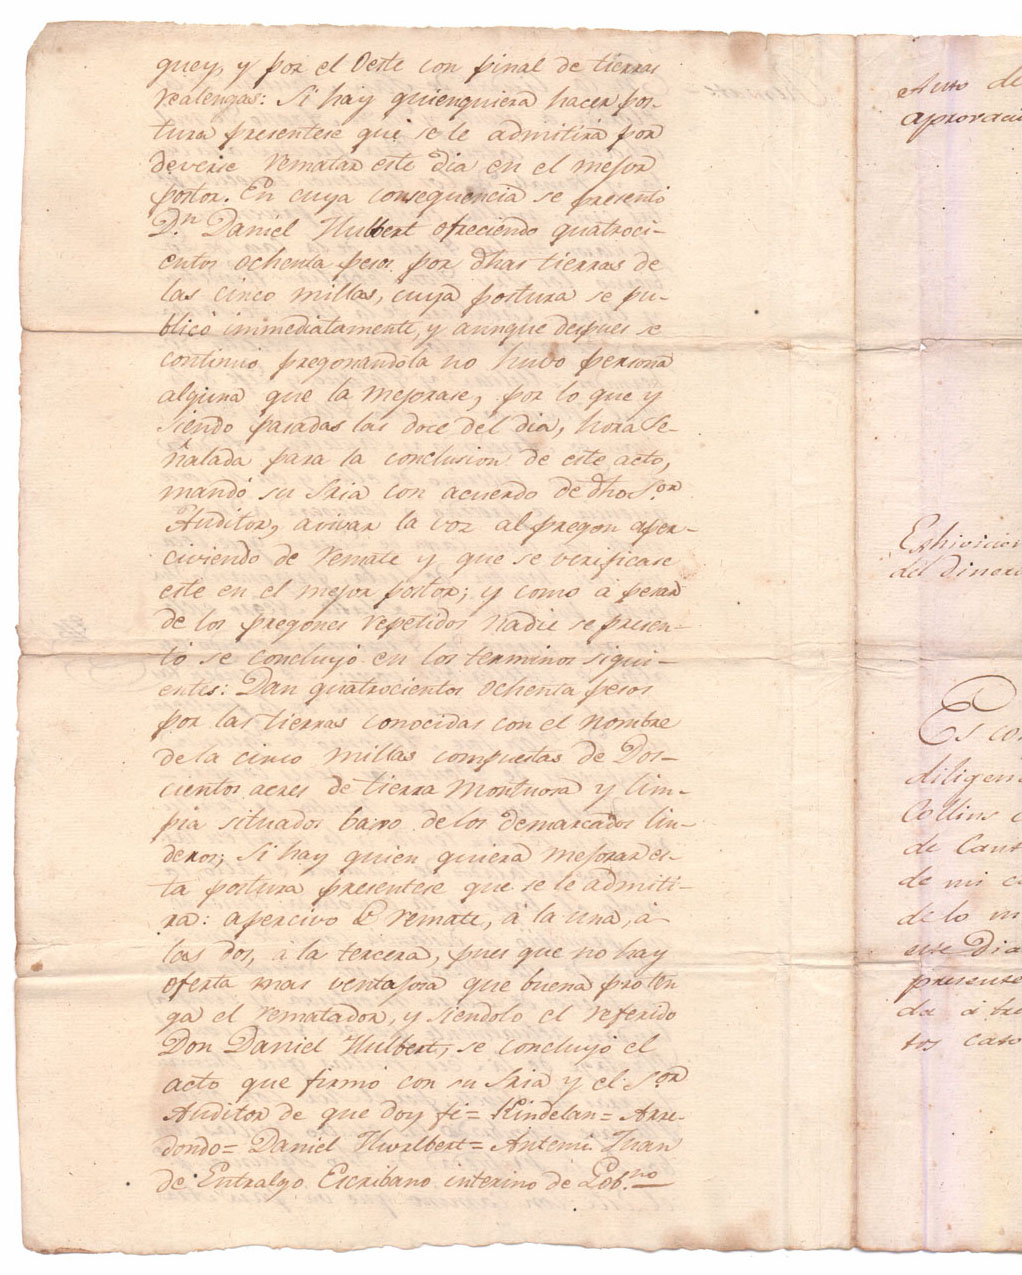 quey, y por el Oeste con pinal de tierras
realengas: Si hay quienquiera hacer pos-
tura presentese que se le admitirá por
deverse rematar este dia en el mejor
postor. En cuya consequencia se presentó
D.n Daniel Hulbert ofreciendo quatroci-
entos ochenta pesos por dhas tierras de
las cinco millas, cuya postura se pu-
blicó immediatamente, y aunque despues se
continuó pregonandola no huvo persona
alguna que la mejorase, por lo que y
siendo pasadas las doce del dia, hora se-
ñalada para la conclusion de este acto,
mandó su Sria con acuerdo de dho S.or
Auditor, avivar la voz al pregon aper-
civiendo de remate y que se verificase
este en el mejor postor; y como á pesar
de los pregones repetidos nadie se presen-
tó se concluyó en los terminos sigui-
entes: Dan quatrocientos ochenta pesos
por las tierras conocidas con el nombre
de la cinco millas compuestas de Dos-
cientos acres de tierra Montuosa y lim-
pia situados baxo de los demarcados lin-
deros; Si hay quien quiera mejorar es-
ta postura presentese que se le admiti-
ra: apercivo de remate, á la una, á
las dos, á la tercera, pues que no hay
oferta mas ventajosa que buena pro ten
ga el rematador, y siendolo el referido
Don Daniel Hulbert, se concluyó el
acto que firmó con su Sria y el S.or
Auditor de que doy fé= Kindelan= Arre-
dondo= Daniel Hurlbert= Antemi Juan
de Entralgo Escribano interino de Gob.no
Auto de
aprovaci
Exhivicion
del dinero
Es co
diligen
Collins
de
de mi c
de lo m
este Dia
presente
da á
tos caso